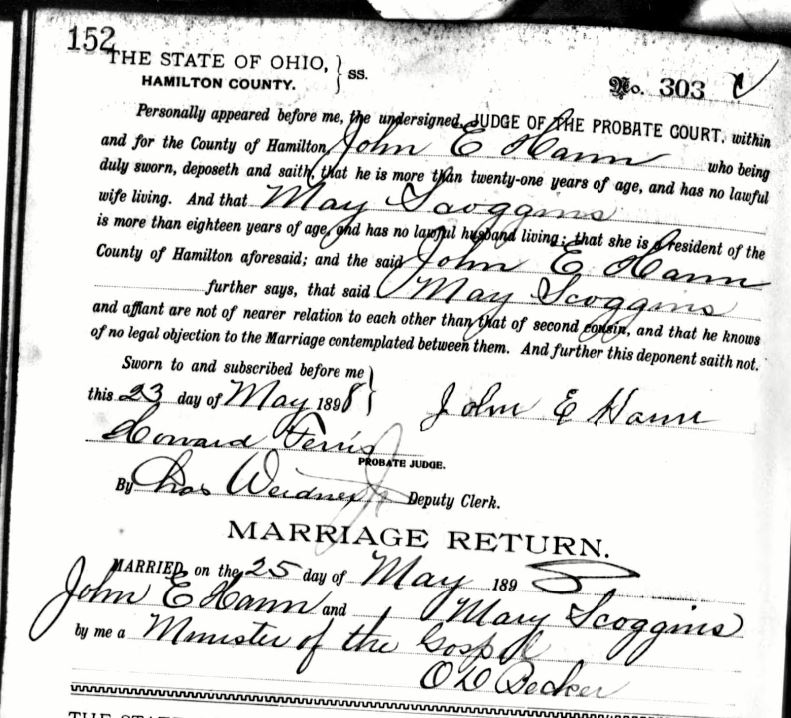 152
THE STATE OF OHIO, } ss.
HAMILTON COUNTY.
No. 303
Personally appeared before me, the undersigned, JUDGE OF THE PROBATE COURT, within
and for the County of Hamilton, John E Hann who being
duly sworn, deposeth and saith, that he is more than twenty-one years of age, and has no lawful
wife living. And that May Scoggins
is more than eighteen years of age, and has no lawful husband living; that she is a resident of the
County of Hamilton aforesaid; and the said John E Hann
further says, that said May Scoggins
and affiant are not of nearer relation to each other than that of second cousin, and that he knows
of no legal objection to the Marriage contemplated between them. And further this deponent saith not.
Sworn to and subscribed before me }
this 23 day of May 1898 } John E Hann
Howard Ferris
PROBATE JUDGE.
By Chas Weidner Jr Deputy Clerk.
MARRIAGE RETURN.
MARRIED, on the 25 day of May 1898
John E Hann and Mary Scoggins
by me a Minister of the Gospel
O D Becker